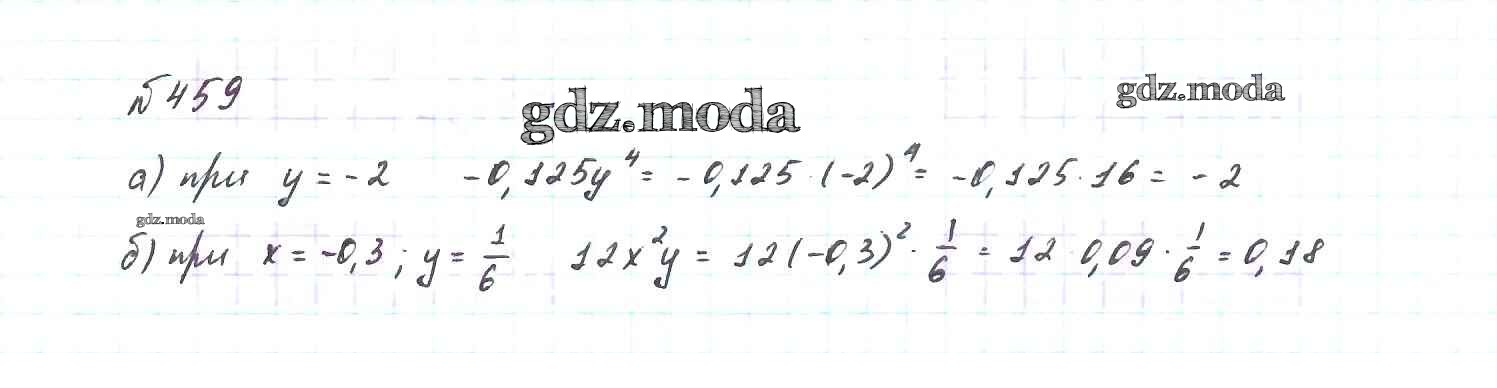 № 459
gdz.moda
gdz.moda
а) при y = -2 -0,125y⁴ = -0,125 · (-2)⁴ = -0,125 · 16 = -2
gdz.moda
б) при x = -0,3; y = 1/6 12x²y = 12(-0,3)² · 1/6 = 12 0,09 · 1/6 = 0,18